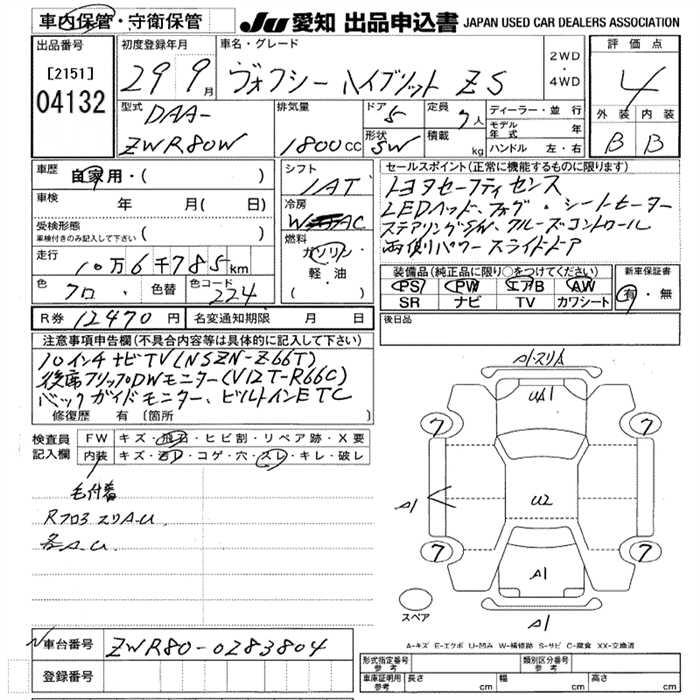 車内保管・守衛保管
JU 愛知 出品申込書 JAPAN USED CAR DEALERS ASSOCIATION
出品番号
[2151]
04132
初度登録年月
29 9月
車名・グレード
ヴォクシー ハイブリット ZS
2WD
・
4WD
評価点
4
外装 内装
B B
型式
DAA-
ZWR80W
排気量
1800cc
ドア 5
形状 SW
定員 7人
積載 kg
ディーラー・並行
モデル年式 年
ハンドル 左・右
車歴 自家用・( )
車検 年 月( 日)
受検形態
車検付きのみ記入して下さい ( )
走行 10万6千785km
色 クロ・ 色替 色コード 224
シフト
IAT
冷房
WAC
燃料
ガソリン
軽・油
( )
セールスポイント(正常に機能するものに限ります)
トヨタセーフティセンス
LEDヘッド、フォグ・シートヒーター
ステアリングSW、クルーズコントロール
両側パワースライドドア
装備品(純正品に限り○をつけてください)
PS PW エアB AW
SR ナビ TV カワシート
新車保証書
有・無
R券 12470円 名変通知期限 月 日
後日品
注意事項申告欄(不具合内容等は具体的に記入して下さい)
10インチナビTV(NSZN-Z66T)
後席フリップDWモニター(V12T-R66C)
バックガイドモニター、ビルトインETC
修復歴 有〔箇所
検査員記入欄
FW キズ・飛石・ヒビ割・リペア跡・X要
内装 キズ・汚レ・コゲ・穴・スレ・キレ・破レ
毛付着
Rフロ3 スリA-U
各A.U
A1・スリA
UA1
7 7
A1
U2
7 7
A1
スペア
A1
A-キズ E-エクボ U-凹み W-補修跡 S-サビ C-腐食 XX-交換済
車台番号 ZWR80-0283804
登録番号
形式指定番号 参考
類別区分番号 参考
車庫証明用 参考 長さ cm 幅 cm 高さ cm